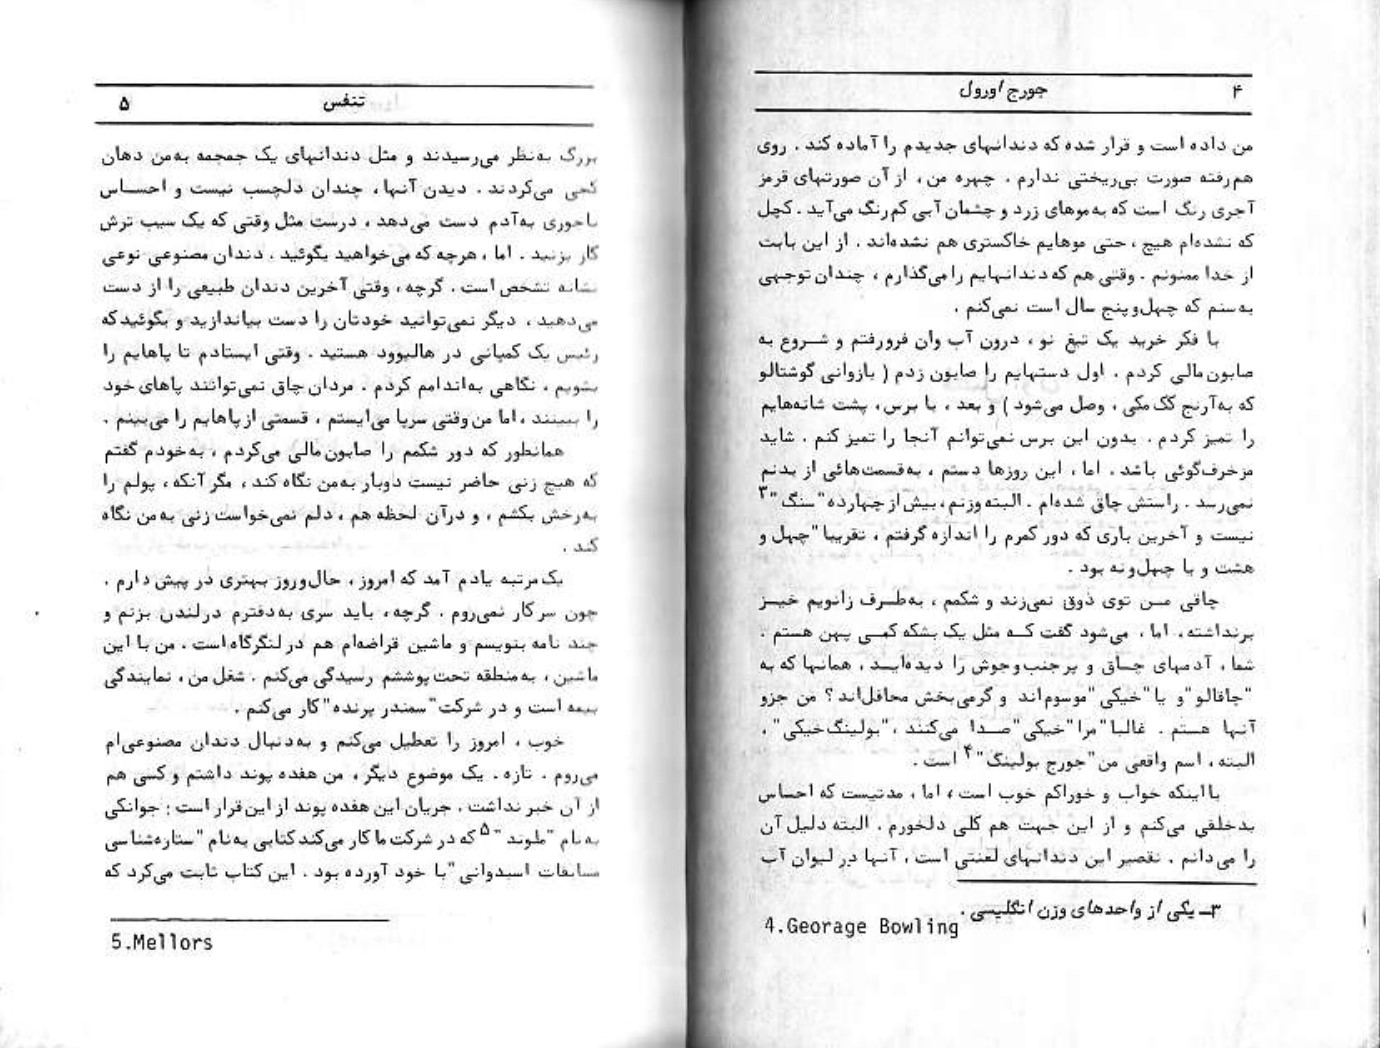 ۴
جورج اورول
من داده است و قرار شده که دندانهای جدیدم را آماده کند . روی
هم‌رفته صورت بی‌ریختی ندارم . چهره من ، از آن صورتهای قرمز
آجری رنگ است که به‌موهای زرد و چشمان آبی کم‌رنگ می‌آید . کچل
که نشده‌ام هیچ ، حتی موهایم خاکستری هم نشده‌اند . از این بابت
از خدا ممنونم . وقتی هم که دندانهایم را می‌گذارم ، چندان توجهی
به‌سنم که چهل‌وپنج سال است نمی‌کنم .
با فکر خرید یک تیغ نو ، درون آب وان فرورفتم و شــروع به
صابون‌مالی کردم . اول دستهایم را صابون زدم ( بازوانی گوشتالو
که به‌آرنج کک‌مکی ، وصل می‌شود ) و بعد ، با برس ، پشت شانه‌هایم
را تمیز کردم . بدون این برس نمی‌توانم آنجا را تمیز کنم . شاید
مزخرف‌گوئی باشد . اما ، این روزها دستم ، به‌قسمت‌هائی از بدنم
نمی‌رسد . راستش چاق شده‌ام . البته وزنم ، بیش از چهارده "سنگ "۳
نیست و آخرین باری که دور کمرم را اندازه گرفتم ، تقریبا "چهل و
هشت و یا چهل‌ونه بود .
چاقی مــن توی ذوق نمی‌زند و شکمم ، به‌طــرف زانویم خیــز
برنداشته، اما ، می‌شود گفت کــه مثل یک بشکه کمــی پهن هستم .
شما ، آدمهای چــاق و پر‌جنب‌وجوش را دیده‌ایــد ، همانها که به
"چاقالو"و یا "خیکی "موسوم‌اند و گرمی‌بخش محافل‌اند ؟ من جزو
آنها هستم . غالبا "مرا "خیکی "صــدا می‌کنند ، "بولینگ‌خیکی " .
البته ، اسم واقعی من "جورج بولینگ "۴ است .
با‌اینکه خواب و خوراکم خوب است ، اما ، مدتیست که احساس
بدخلقی می‌کنم و از این جهت هم کلی دلخورم . البته دلیل آن
را می‌دانم . تقصیر این دندانهای لعنتی است ، آنها در لیوان آب
۳ــ یکی از واحدهای وزن انگلیسی .
4.Georage Bowling
تنفس
۵
بزرگ به‌نظر می‌رسیدند و مثل دندانهای یک جمجمه به‌من دهان
کجی می‌کردند . دیدن آنها ، چندان دلچسب نیست و احســاس
ناجوری به‌آدم دست می‌دهد ، درست مثل وقتی که یک سیب ترش
گاز بزنید . اما ، هرچه که می‌خواهید بگوئید . دندان مصنوعی نوعی
نشانه تشخص است . گرچه ، وقتی آخرین دندان طبیعی را از دست
می‌دهید ، دیگر نمی‌توانید خودتان را دست بیاندازید و بگوئید که
رئیس یک کمپانی در هالیوود هستید . وقتی ایستادم تا پاهایم را
بشویم ، نگاهی به‌اندامم کردم . مردان چاق نمی‌توانند پاهای خود
را ببینند ، اما من وقتی سرپا می‌ایستم ، قسمتی از پاهایم را می‌بینم .
همانطور که دور شکمم را صابون‌مالی می‌کردم ، به‌خودم گفتم
که هیچ زنی حاضر نیست دوبار به‌من نگاه کند ، مگر آنکه ، پولم را
به‌رخش بکشم ، و درآن لحظه هم ، دلم نمی‌خواست زنی به‌من نگاه
کند .
یک‌مرتبه یادم آمد که امروز ، حال‌وروز بهتری در پیش دارم .
چون سر کار نمی‌روم . گرچه ، باید سری به‌دفترم در لندن بزنم و
چند نامه بنویسم و ماشین قراضه‌ام هم در لنگرگاه است . من با این
ماشین ، به‌منطقه تحت‌پوششم رسیدگی می‌کنم . شغل من ، نمایندگی
بیمه است و در شرکت "سمندر پرنده "کار می‌کنم .
خوب ، امروز را تعطیل می‌کنم و به‌دنبال دندان مصنوعی‌ام
می‌روم . تازه . یک موضوع دیگر ، من هفده پوند داشتم و کسی هم
از آن خبر نداشت . جریان این هفده پوند از این‌قرار است : جوانکی
به‌نام "ملوند "۵ که در شرکت ما کار می‌کند کتابی به‌نام "ستاره‌شناسی
مسابقات اسبدوانی "با خود آورده بود . این کتاب ثابت می‌کرد که
5.Mellors